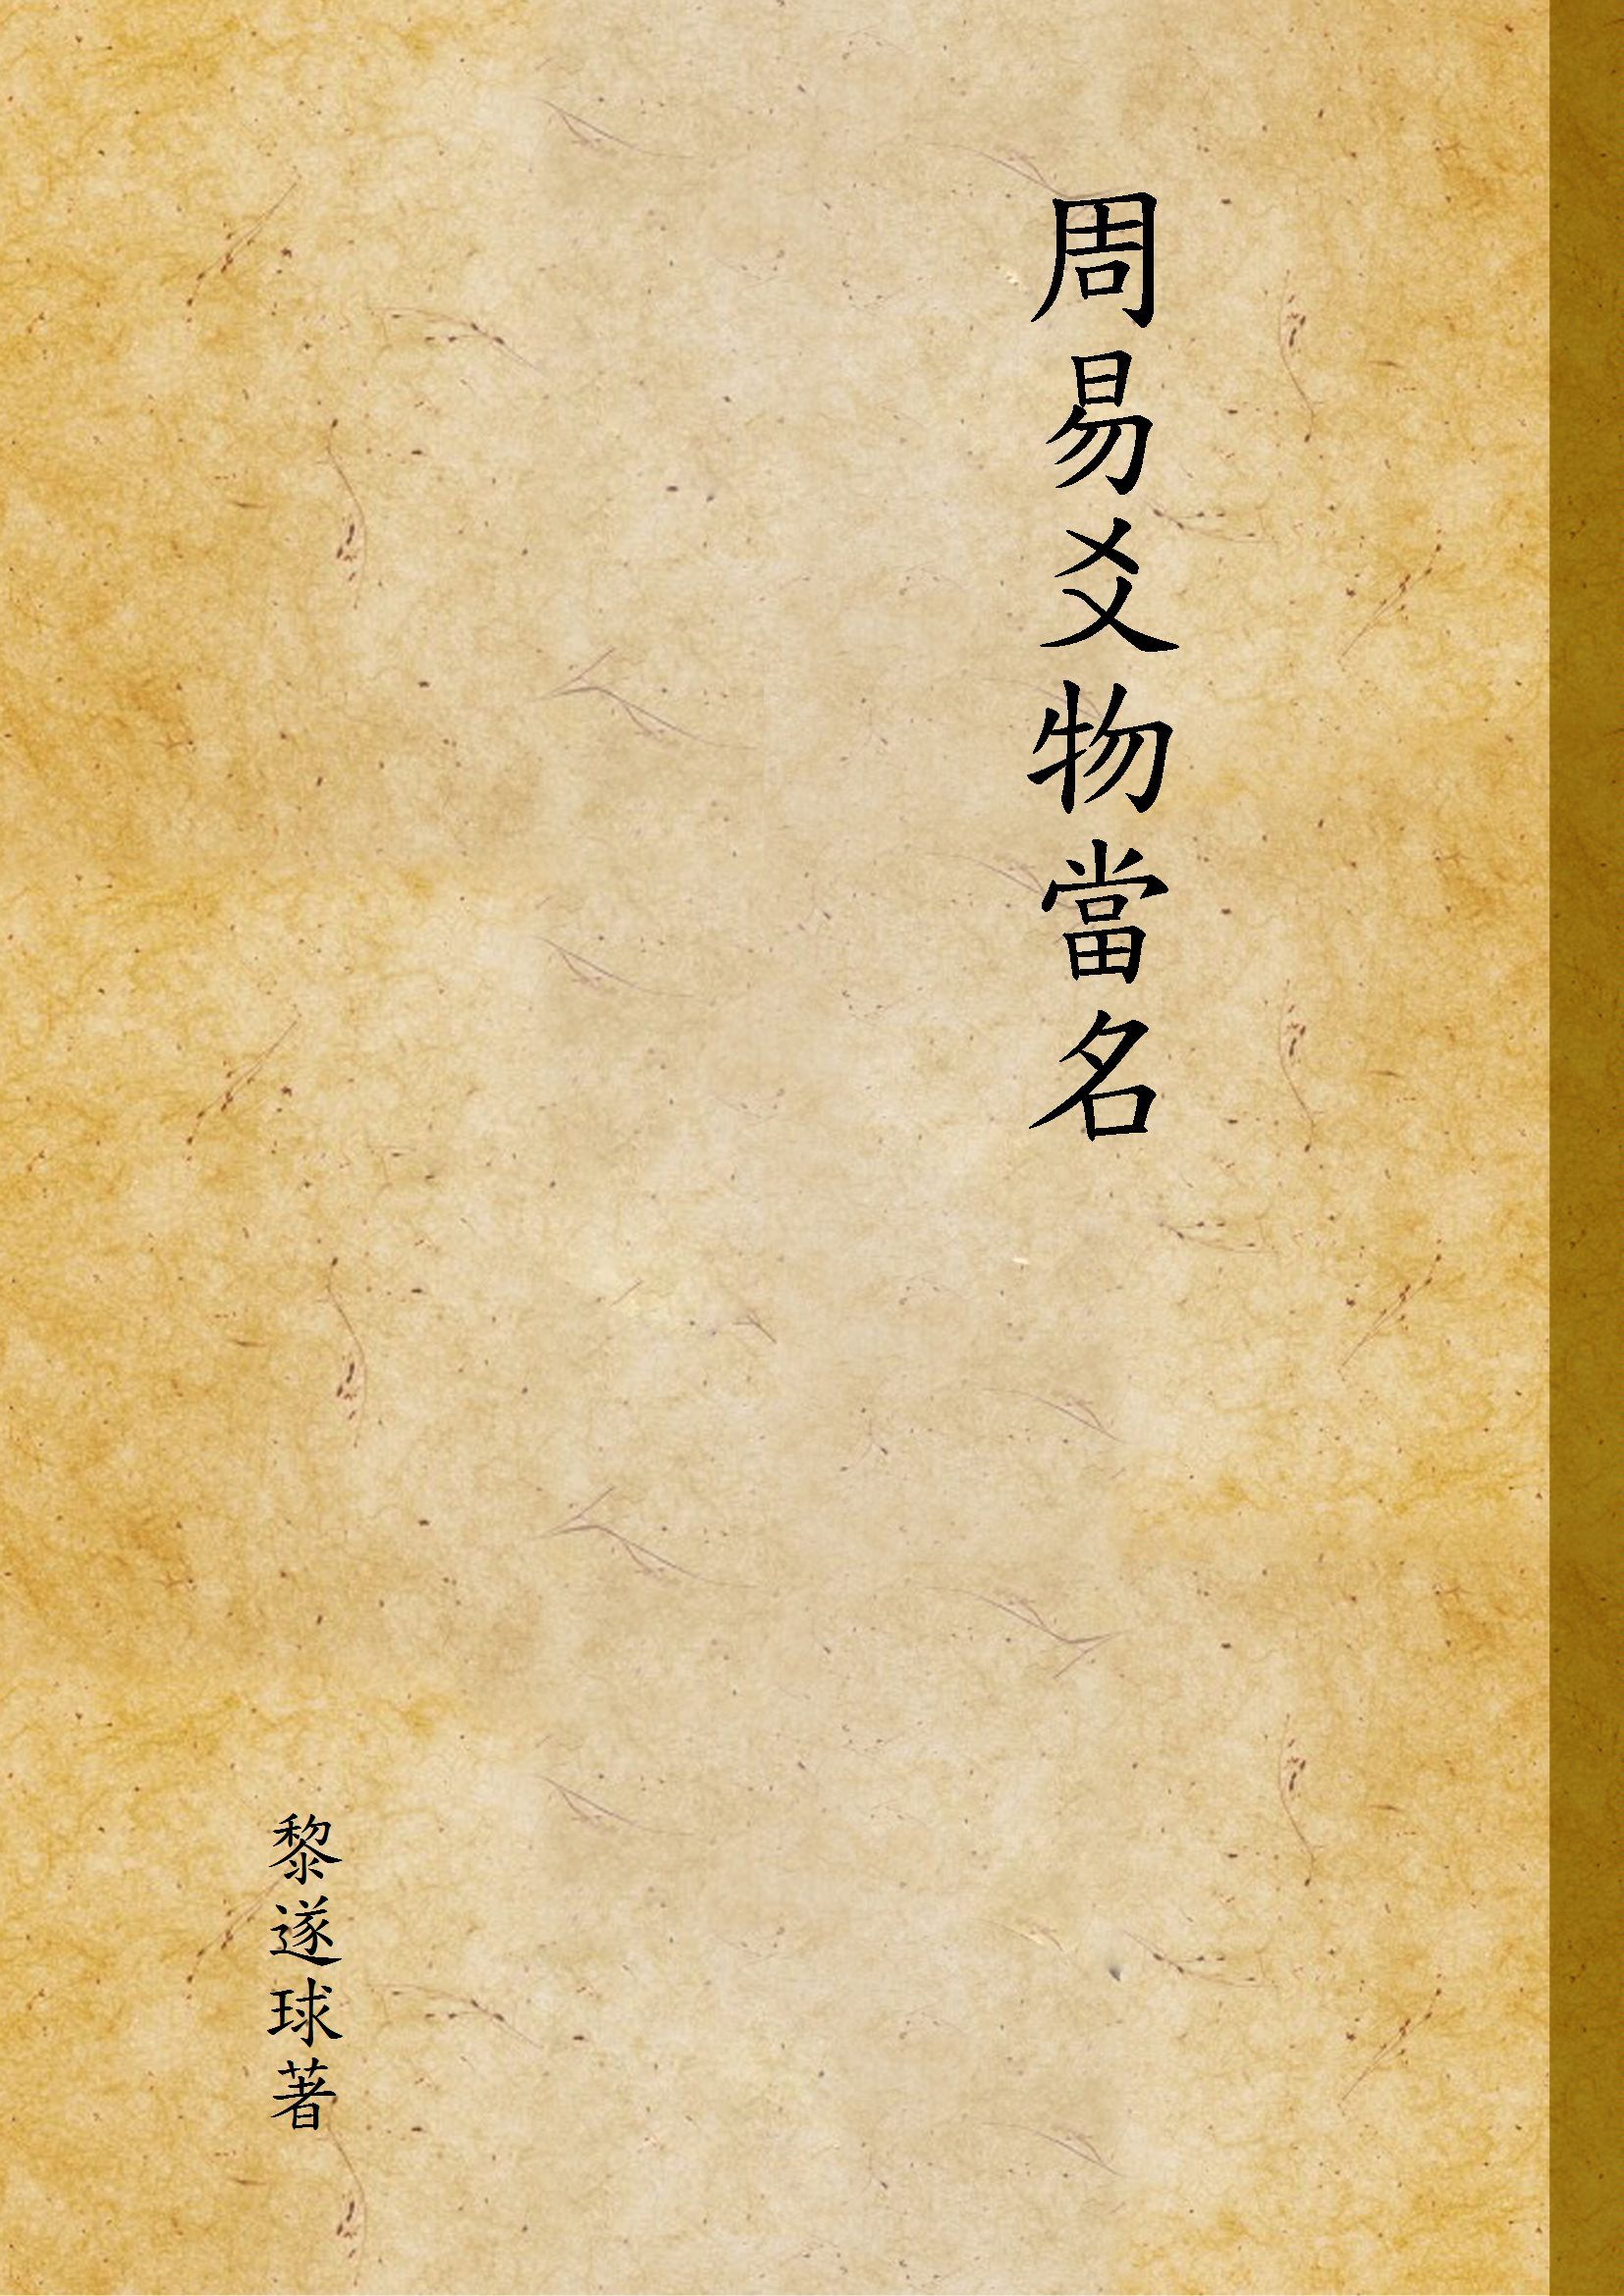 周易爻物當名
黎遂球著